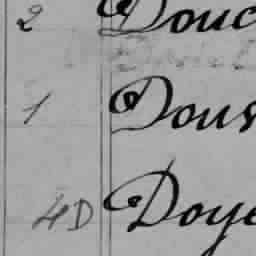 2 Douc
1 Dous
4D Doye